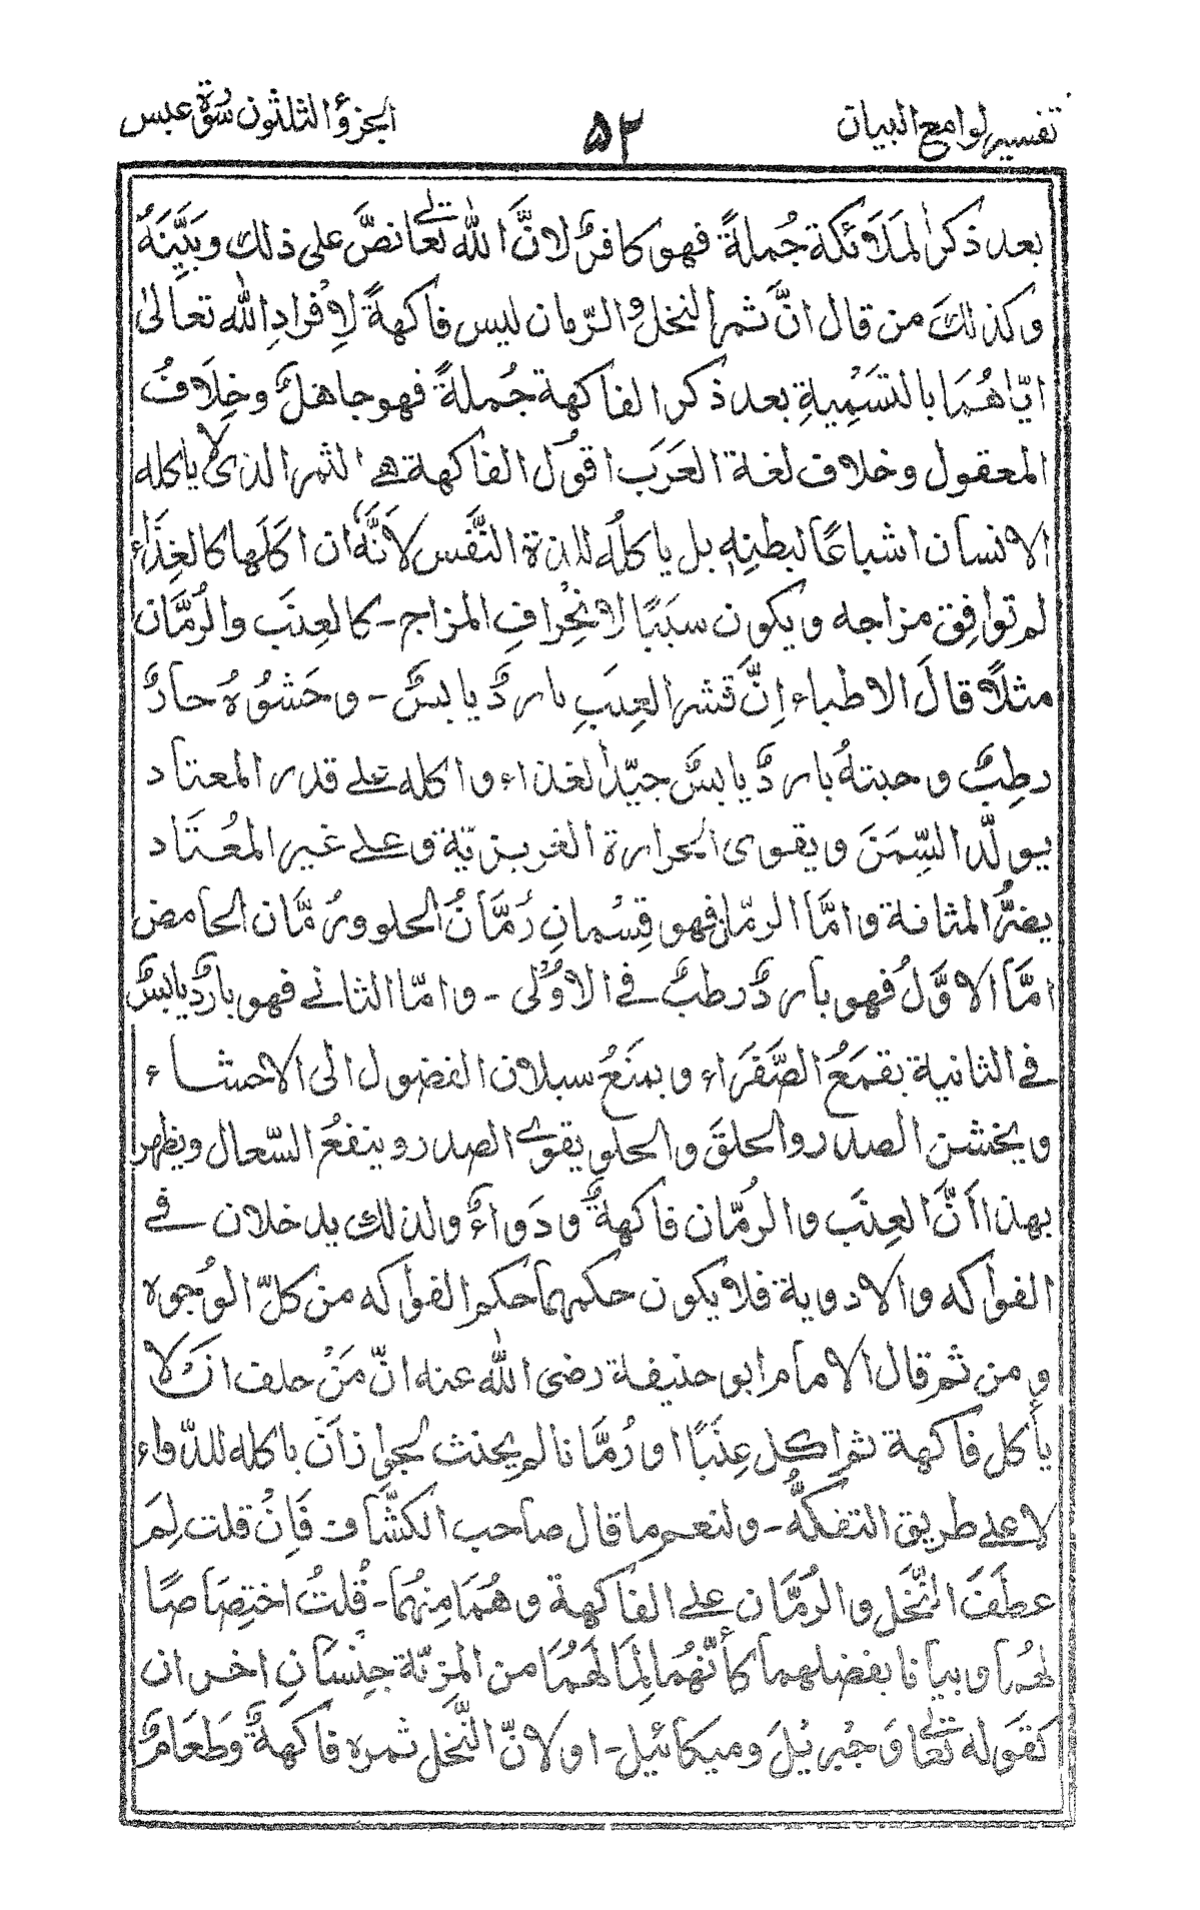 تفسير لوامع البيان ۵۲ الجزؤ الثلثون سورة عبس
بعد ذكر الملَائكة جُملةً فهو كافرٌ لانَّ الله تعالى نصَّ على ذلك وبَيَّنَهُ
وكذلكَ من قال انَّ ثمر النخل والرّمان ليس فاكهةً لِافْرادِ الله تعالىٰ
ايّاهُمَا بالتسْمِيةِ بعد ذكر الفاكهة جُملةً فهو جاهلٌ وخِلَافُ
المعقول وخلاف لغة العَرَب اقوُل الفاكهة هے الثمر الذى لا ياكله
الانسان اشباعًا لبطنِهٖ بل ياكلُه للذة النَّفس لأنَّهٗ ان اكَلَها كالغِذَاء
لم توافِق مزاجه ويكون سبَبًا لانْحِرافِ المزاج - كالعِنَب والرُّمَّان
مثلاً قالَ الاطباء اِنَّ قشر العِنَبِ باردٌ يابسٌ - وحَشوُهُ حارٌ
رطِبٌ وحبتهُ باردٌ يابسٌ جيّدُ الغذاء واكله علے قدر المعتاد
يولّد السِّمَنَ ويقوى الحرارة الغريزيّة وعلے غير المُعتَاد
يضرُّ المثانة وامَّا الرمّان فهو قِسْمانِ رُمَّانُ الحلو ورُمَّان الحامض
امَّا الاوَّلُ فهو باردٌ رطبٌ فے الاوُلى - وامّا الثانے فهو باردٌ يابسٌ
فے الثانية يقمَعُ الصَّفرَاء ويمنَعُ سيلان الفضول الى الاحشاء
ويخشن الصدر والحلقَ والحلو يقوے الصدر وينفعُ السّعال ويظهر
بهذا اَنَّ العِنَب والرُمّان فاكهةٌ ودَواءٌ ولذلك يدخلان فے
الفواكه والادوية فلا يكون حكمهما حكم الفواكه من كلّ الوُجوه
ومن ثم قال الامام ابو حنيفة رضى الله عنه انّ مَنْ حلف انْ لا
يأكل فاكهة ثم اكل عِنَبًا او رُمَّانا لم يحنث لجواز اَنْ ياكله للدّواء
لا علے طريق التفكُّه - ولنعم ما قال صاحب الكشَّاف فَاِنْ قلت لِمَ
عطَفَ النَّخْل والرُمَّان علے الفاكهة وهُمَا مِنهُما - قُلتُ اختِصَاصًا
لهُما وبيانا بفضلهما كأنّهُما لِمَا لهُمَا من المزيّة جِنْسَانِ اخران
كقَوله تعالى وَجْبريْلَ وميكائيل - او لانّ النَّخل ثمره فاكهةٌ وَطَعَامٌ